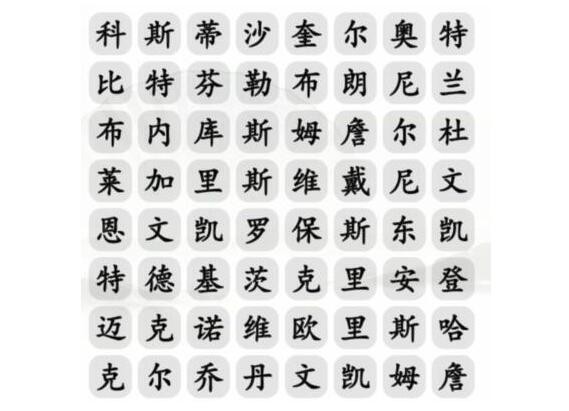 科斯蒂沙奎尔奥特
比特芬勒布朗尼兰
布内库斯姆詹尔杜
莱加里斯维戴尼文
恩文凯罗保斯东凯
特德基茨克里安登
迈克诺维欧里斯哈
克尔乔丹文凯姆詹